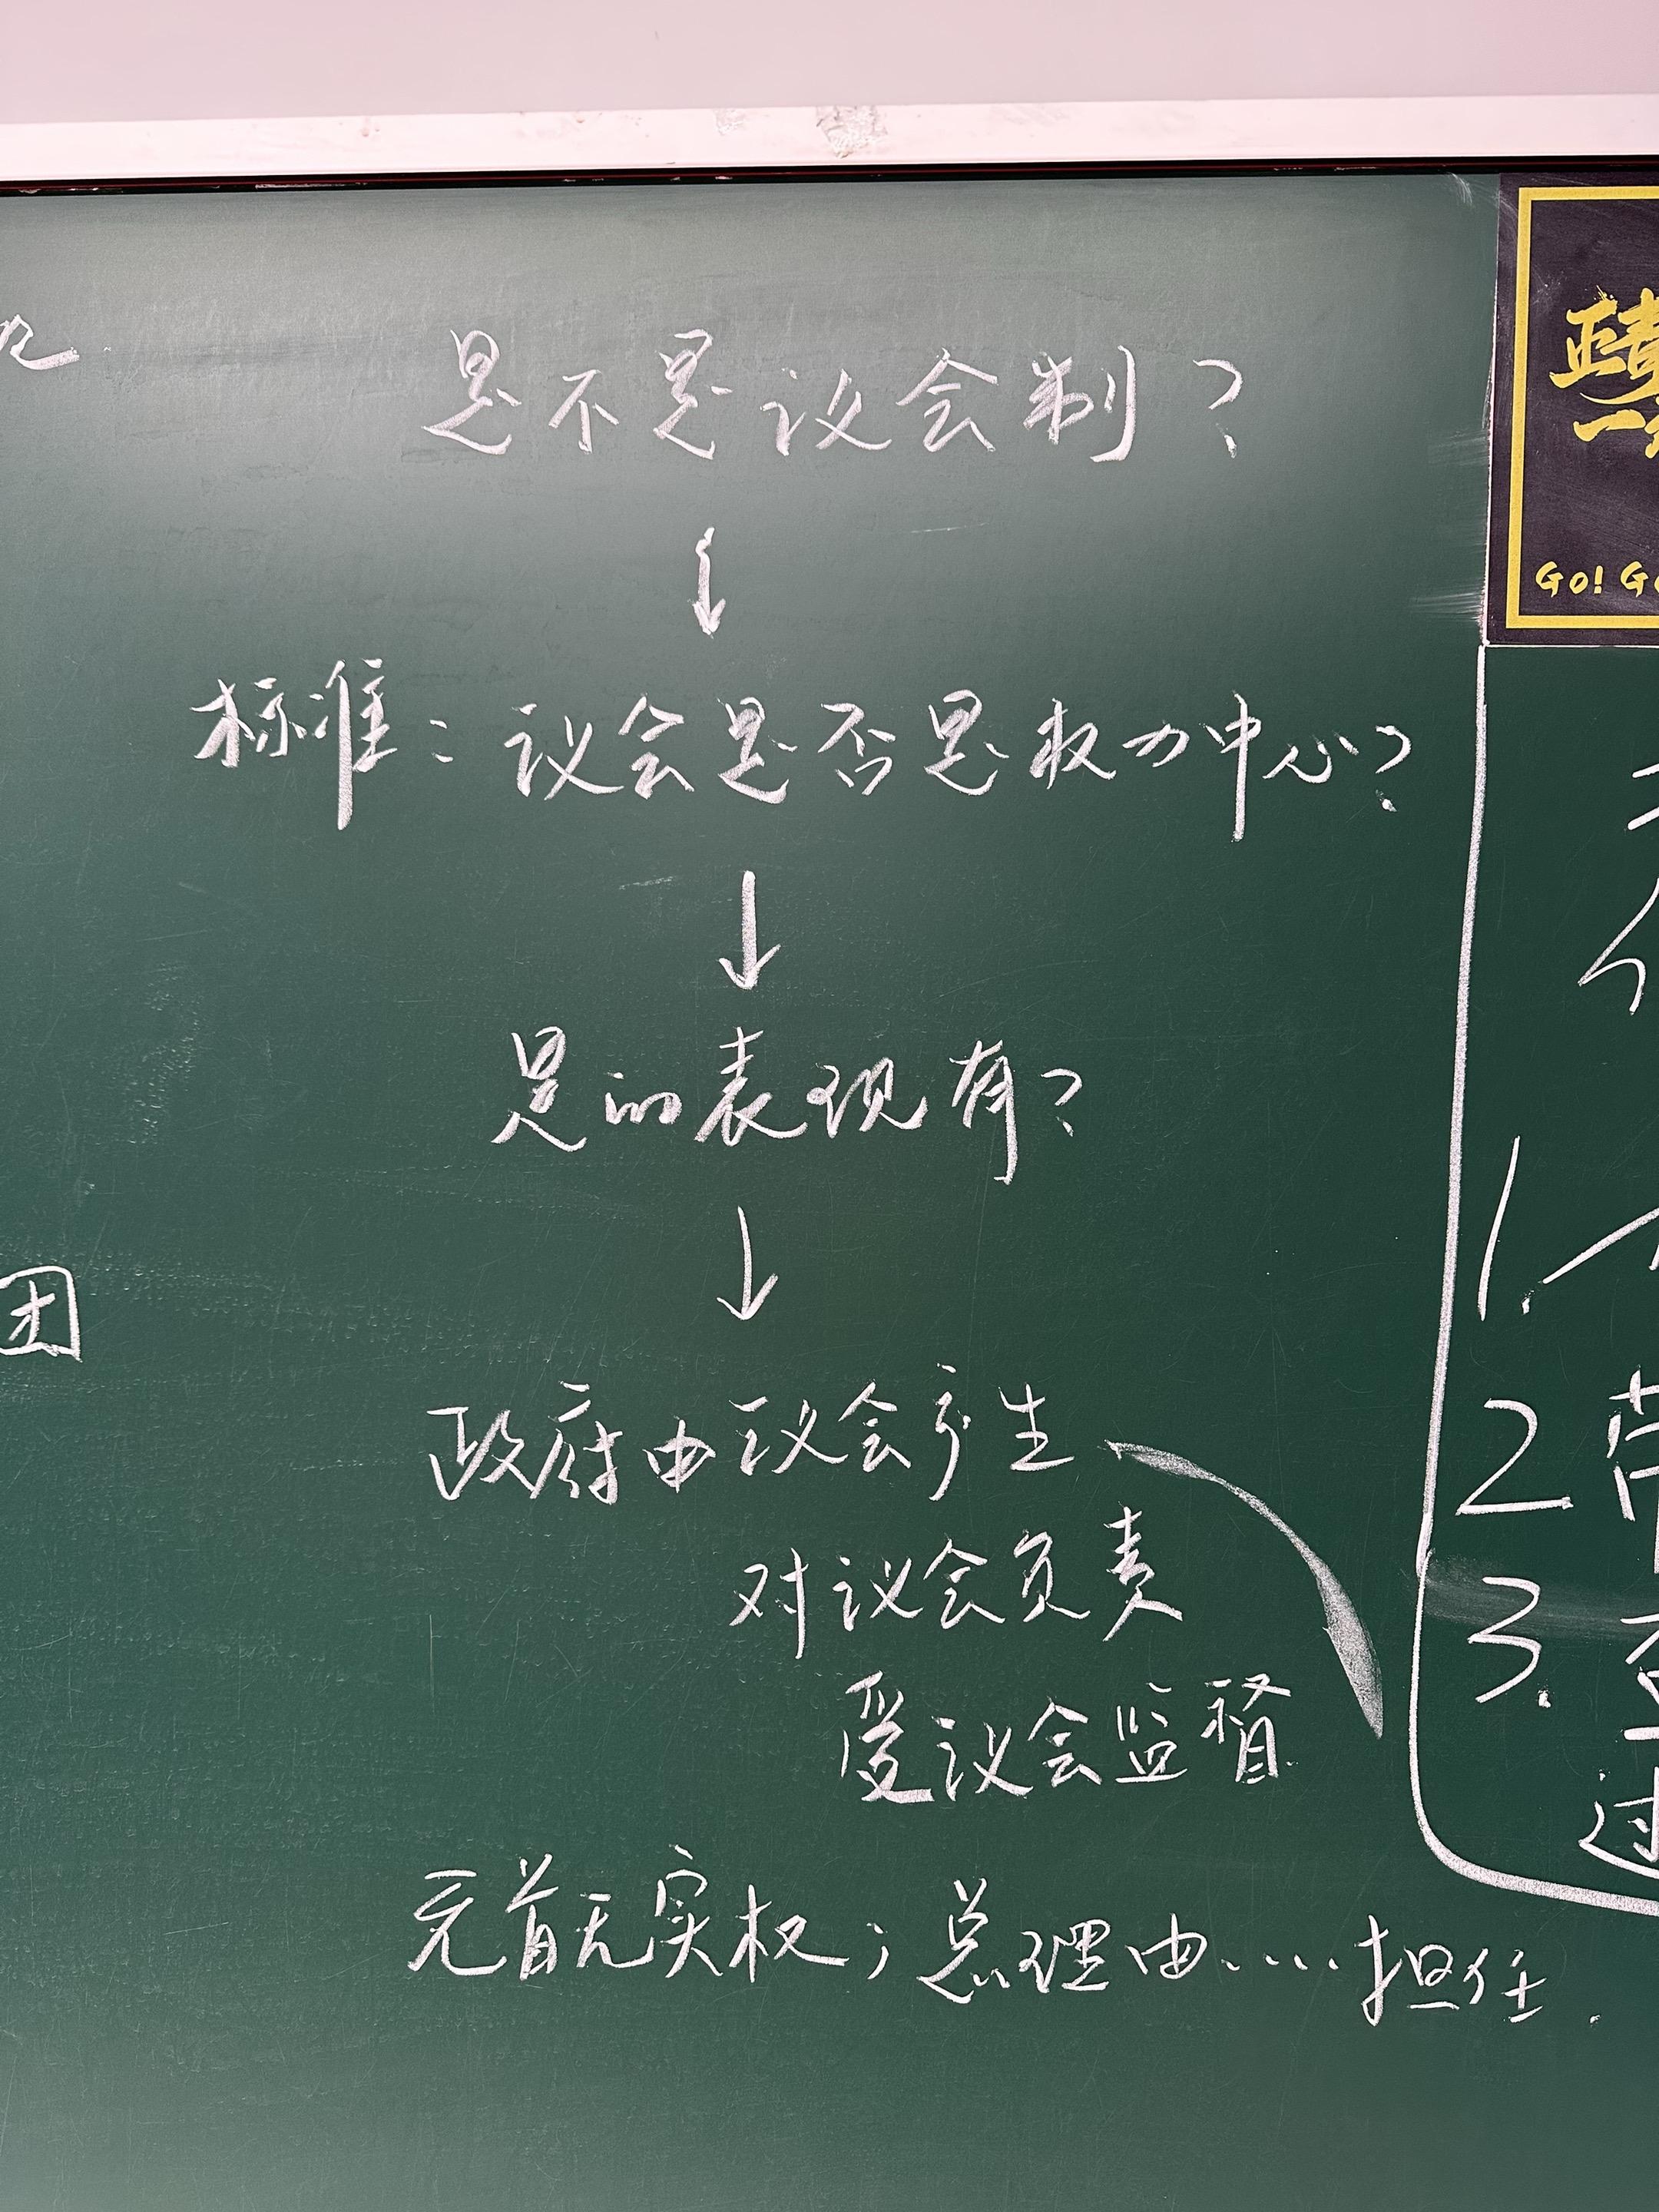 是不是议会制?
↓
标准:议会是否是权力中心?
↓
是的表现有?
↓
政府由议会产生
对议会负责
受议会监督
元首无实权;总理由....担任.
团
1.
2.
3.
过
Go! Go